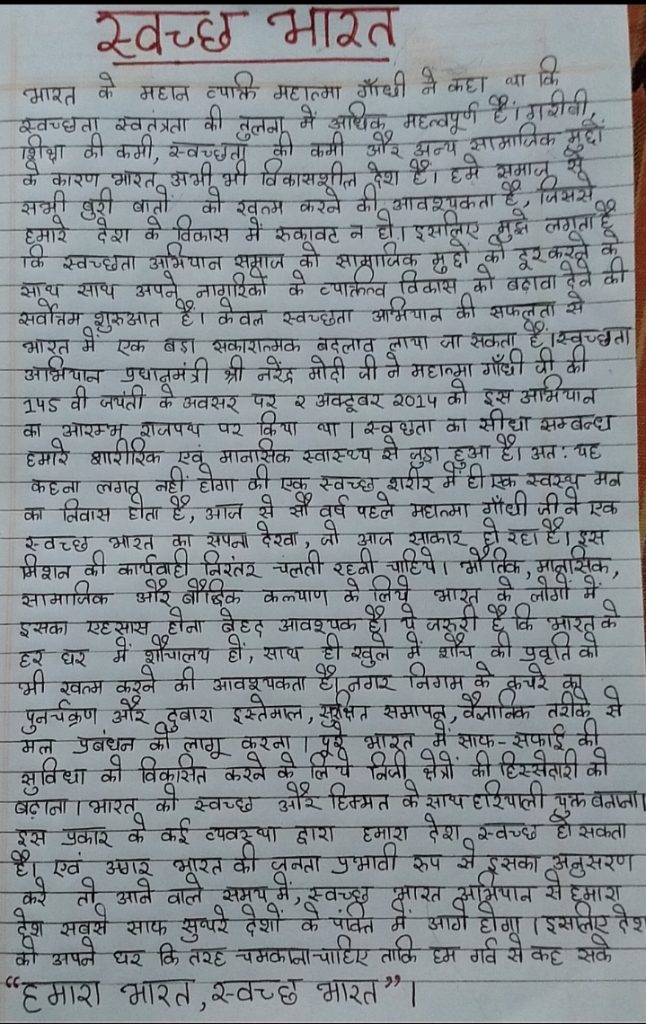 स्वच्छ भारत
भारत के महान व्यक्ति महात्मा गाँधी ने कहा था कि
स्वच्छता स्वतंत्रता की तुलना में अधिक महत्वपूर्ण है। गरीबी,
शिक्षा की कमी, स्वच्छता की कमी और अन्य सामाजिक मुद्दों
के कारण भारत अभी भी विकासशील देश है। हमे समाज से
सभी बुरी बातों को खत्म करने की आवश्यकता है, जिससे
हमारे देश के विकास में रुकावट न हो। इसलिए मुझे लगता है
कि स्वच्छता अभियान समाज को सामाजिक मुद्दों को दूर करने के
साथ साथ अपने नागरिकों के व्यक्तित्व विकास को बढ़ावा देने की
सर्वोत्तम शुरुआत है। केवल स्वच्छता अभियान की सफलता से
भारत में एक बडा सकारात्मक बदलाव लाया जा सकता है। स्वच्छता
अभियान प्रधानमंत्री श्री नरेंद्र मोदी जी ने महात्मा गाँधी जी की
145 वी जयंती के अवसर पर २ अक्टूबर 2014 को इस अभियान
का आरम्भ राजपथ पर किया था। स्वछता का सीधा सम्बन्ध
हमारे शारीरिक एवं मानसिक स्वास्थ्य से जुडा हुआ है। अतः यह
कहना लगत नहीं होगा की एक स्वच्छ शरीर में ही एक स्वस्थ मन
का निवास होता है, आज से सौ वर्ष पहले महात्मा गाँधी जी ने एक
स्वच्छ भारत का सपना देखा, जो आज साकार हो रहा है। इस
मिशन की कार्यवाही निरंतर चलती रहनी चाहिये। भौतिक, मानसिक,
सामाजिक और बौद्धिक कल्याण के लिये भारत के लोगों में
इसका एहसास होना बेहद आवश्यक है। ये जरुरी है कि भारत के
हर घर में शौचालय हों, साथ ही खुले में शौच की प्रवृति को
भी खत्म करने की आवश्यकता है। नगर निगम के कचरे का
पुनर्चक्रण और दुबारा इस्तेमाल, सुरक्षित समापन, वैज्ञानिक तरीके से
मल प्रबंधन को लागू करना। पूरे भारत में साफ-सफाई की
सुविधा को विकसित करने के लिये निजी क्षेत्रों की हिस्सेदारी को
बढ़ाना। भारत को स्वच्छ और हिम्मत के साथ हरियाली युक्त बनाना।
इस प्रकार के कई व्यवस्था द्वारा हमारा देश स्वच्छ हो सकता
है। एवं अगर भारत की जनता प्रभावी रुप से इसका अनुसरण
करे तो आने वाले समय में, स्वच्छ भारत अभियान से हमारा
देश सबसे साफ सुथरे देशों के पंक्ति में आगे होगा। इसलिए देश
को अपने घर कि तरह चमकाना चाहिए ताकि हम गर्व से कह सके
"हमारा भारत, स्वच्छ भारत"।